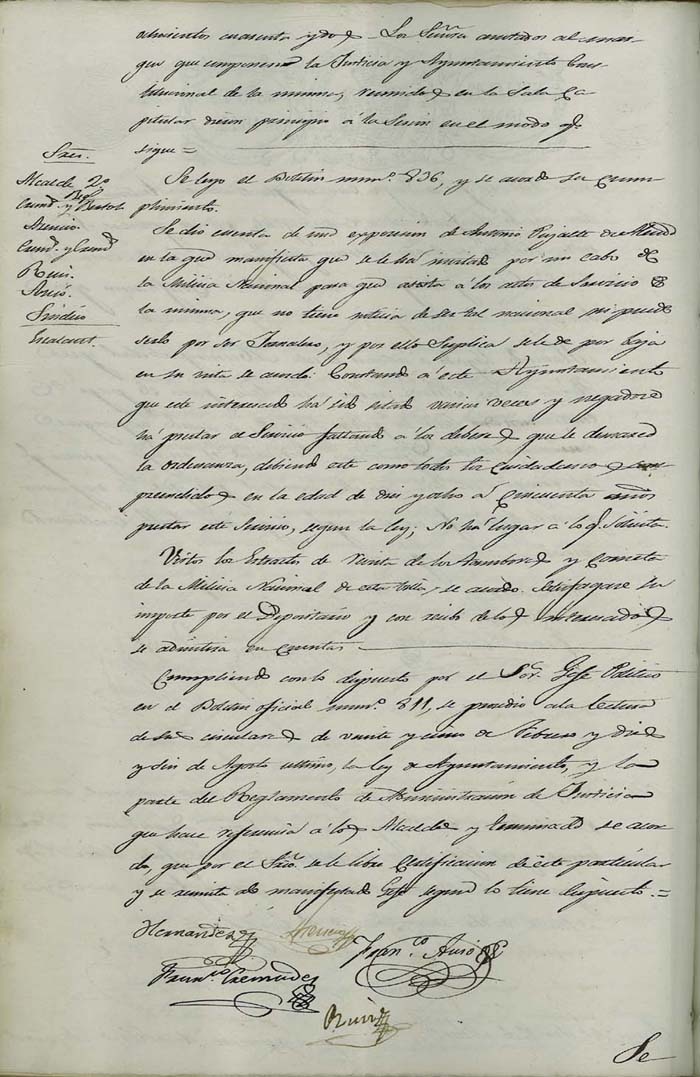 ochocientos cuarenta y dos Los Señores anotados al mar-
gen que componen la Justicia y Ayuntamiento Cons-
titucional de la misma, reunidos en la Sala Ca-
pitular dieron principio á la Sesion en el modo q.e
sigue =
Sres.
Alcalde 2º
Asencio.
Ruiz.
Ausó.
Sindico
Se leyo el Boletin num.º 836, y se acordo su cum-
plimiento.
Se dió cuenta de una exposicion de Antonio Pujalte de
en la que manifiesta que se le há invitado por un cabo de
la Milicia Nacional para que asista a los actos de Servicio de
la misma, que no tiene noticia de ser tal nacional ni puede
serlo por ser Jornalero, y por ello Suplica se le de por baja
en su vista se acordo: Constando á este Ayuntamiento
que este interesado há sido citado varias veces y negadose
há prestar el Servicio faltando á los deberes que le demarca
la ordenanza, debiendo este como todos los Ciudadanos com
prendidos en la edad de diez y ocho á Cincuenta años
prestar este Servicio, segun la ley; No há lugar a lo q.e Solicita.
Vistos los Extractos de Revista de los Tambores y Corneta
de la Milicia Nacional de esta Villa, se acordo. Satisfagase su
importe por el Depositario y con recibo de los interesados
se admitira en cuentas
Cumpliendo con lo dispuesto por el Sor. Gefe Politico
en el Boletin oficial num.º 811, se procedio a la lectura
de sus circulares de veinte y cinco de Febrero y diez
y seis de Agosto ultimo, la ley de Ayuntamientos, y la
parte del Reglamento de Administracion de Justicia
que hace referencia á los Alcaldes y terminado se acor-
do, que por el Srio. se le libre Certificacion de este particular
y se remita al manifestado Gefe segun lo tiene dispuesto. =
Hernandez Asencio Fran.co Ausó
Fran.co Cremades
Ruiz
Se